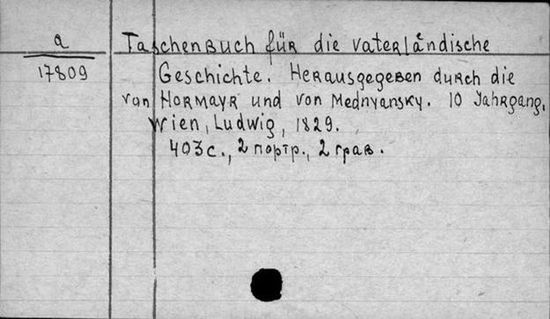 a
17809
Taschenbuch für die vaterländische
Geschichte. Herausgegeben durch die
von Hormayr und von Mednyansky. 10 Jahrgang.
Wien, Ludwig, 1829.
403 с., 2 портр., 2 грав.